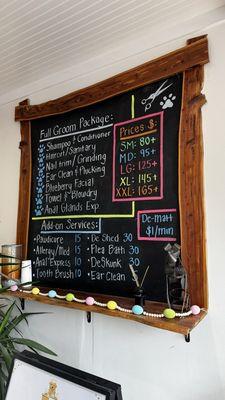 Full Groom Package:
Shampoo & Conditioner
Haircut/Sanitary
Nail trim/Grinding
Ear Clean & Plucking
Blueberry Facial
Towel & Blowdry
Anal Glands Exp
Prices $:
SM: 80+
MD: 95+
LG: 125+
XL: 145+
XXL: 165+
Add-on Services
Pawdicure 15
Allergy/Med 15
Anal Express 10
Tooth Brush 10
De Shed 30
Flea Bath 30
DeSkunk 30
Ear Clean
De-mat
$1/min